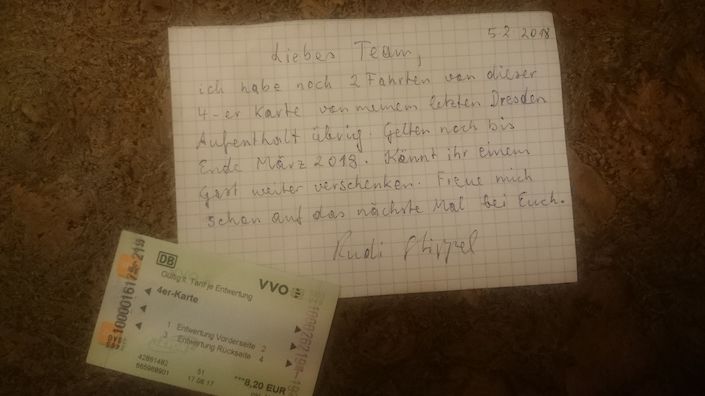 5.2 2018
Liebes Team,
ich habe noch 2 Fahrten von dieser
4-er Karte von meinem letzten Dresden
Aufenthalt übrig. Gelten noch bis
Ende März 2018. Könnt ihr einem
Gast weiter verschenken. Freue mich
schon auf das nächste Mal bei Euch.
Rudi
DB
VVO
Gültig lt. Tarif je Entwertung
4er-Karte
1 Entwertung Vorderseite 2
3 Entwertung Rückseite 4
51
17.08.17
***8,20 EUR